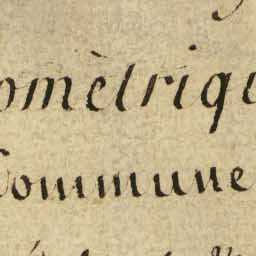 omètriqu
Commune